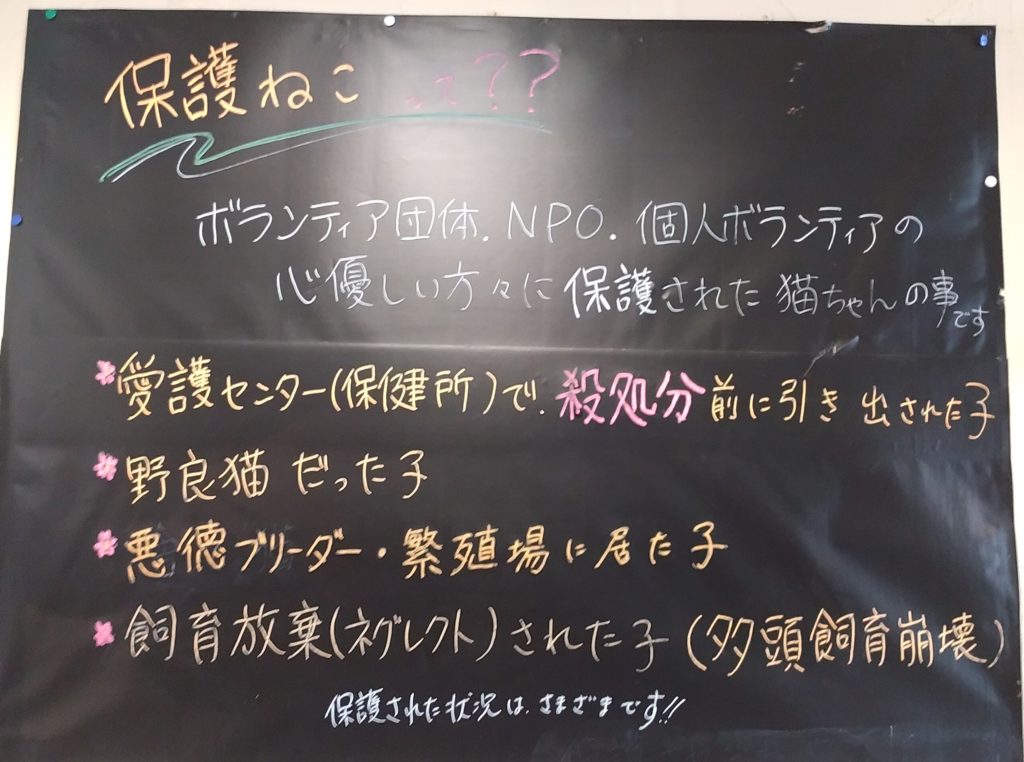 保護ねこって??
ボランティア団体.NPO.個人ボランティアの
心優しい方々に保護された猫ちゃんの事です
*愛護センター(保健所)で.殺処分前に引き出された子
*野良猫だった子
*悪徳ブリーダー・繁殖場に居た子
*飼育放棄(ネグレクト)された子(多頭飼育崩壊)
保護された状況は.さまざまです!!